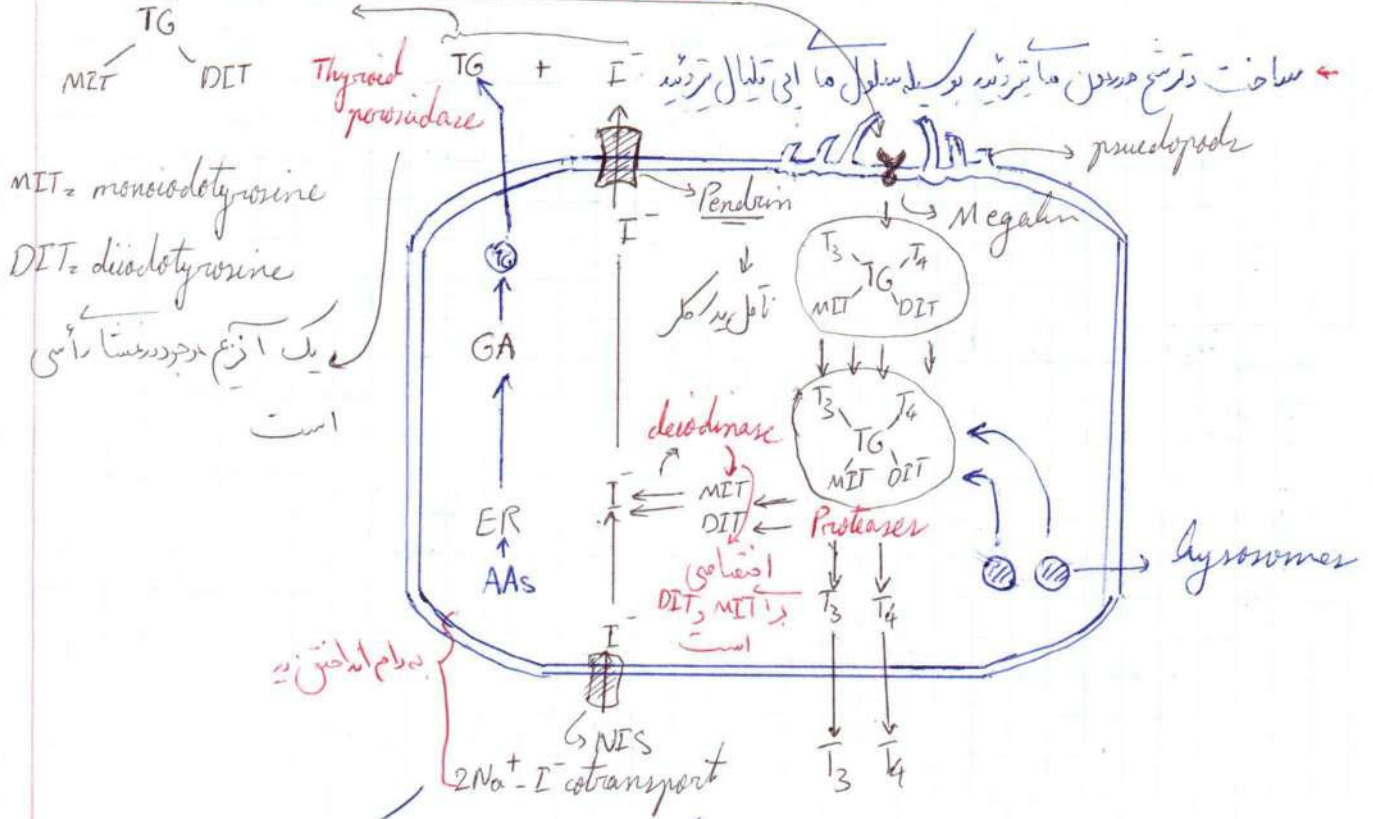 TG
MIT DIT
Thyroid
peroxidase
TG + I⁻
← ساخت و ترشح هورمون ها تیروئید بوسیله سلول ها اپی تلیال تیروئید
MIT = monoiodotyrosine
DIT = diiodotyrosine
یک آنزیم موجود در غشا رأسی
است
psuedopods
Pendrin
Megalin
I⁻
T₃ T₄
TG
MIT DIT
TG
GA
ER
AAs
T₃ T₄
TG
MIT DIT
deiodinase
I⁻
MIT
DIT
Proteases
اختصاصی
برا MIT و DIT
است
T₃ T₄
lysosomes
I⁻
به دام انداختن ید
NIS
2Na⁺ - I⁻ cotransport
T₃ T₄